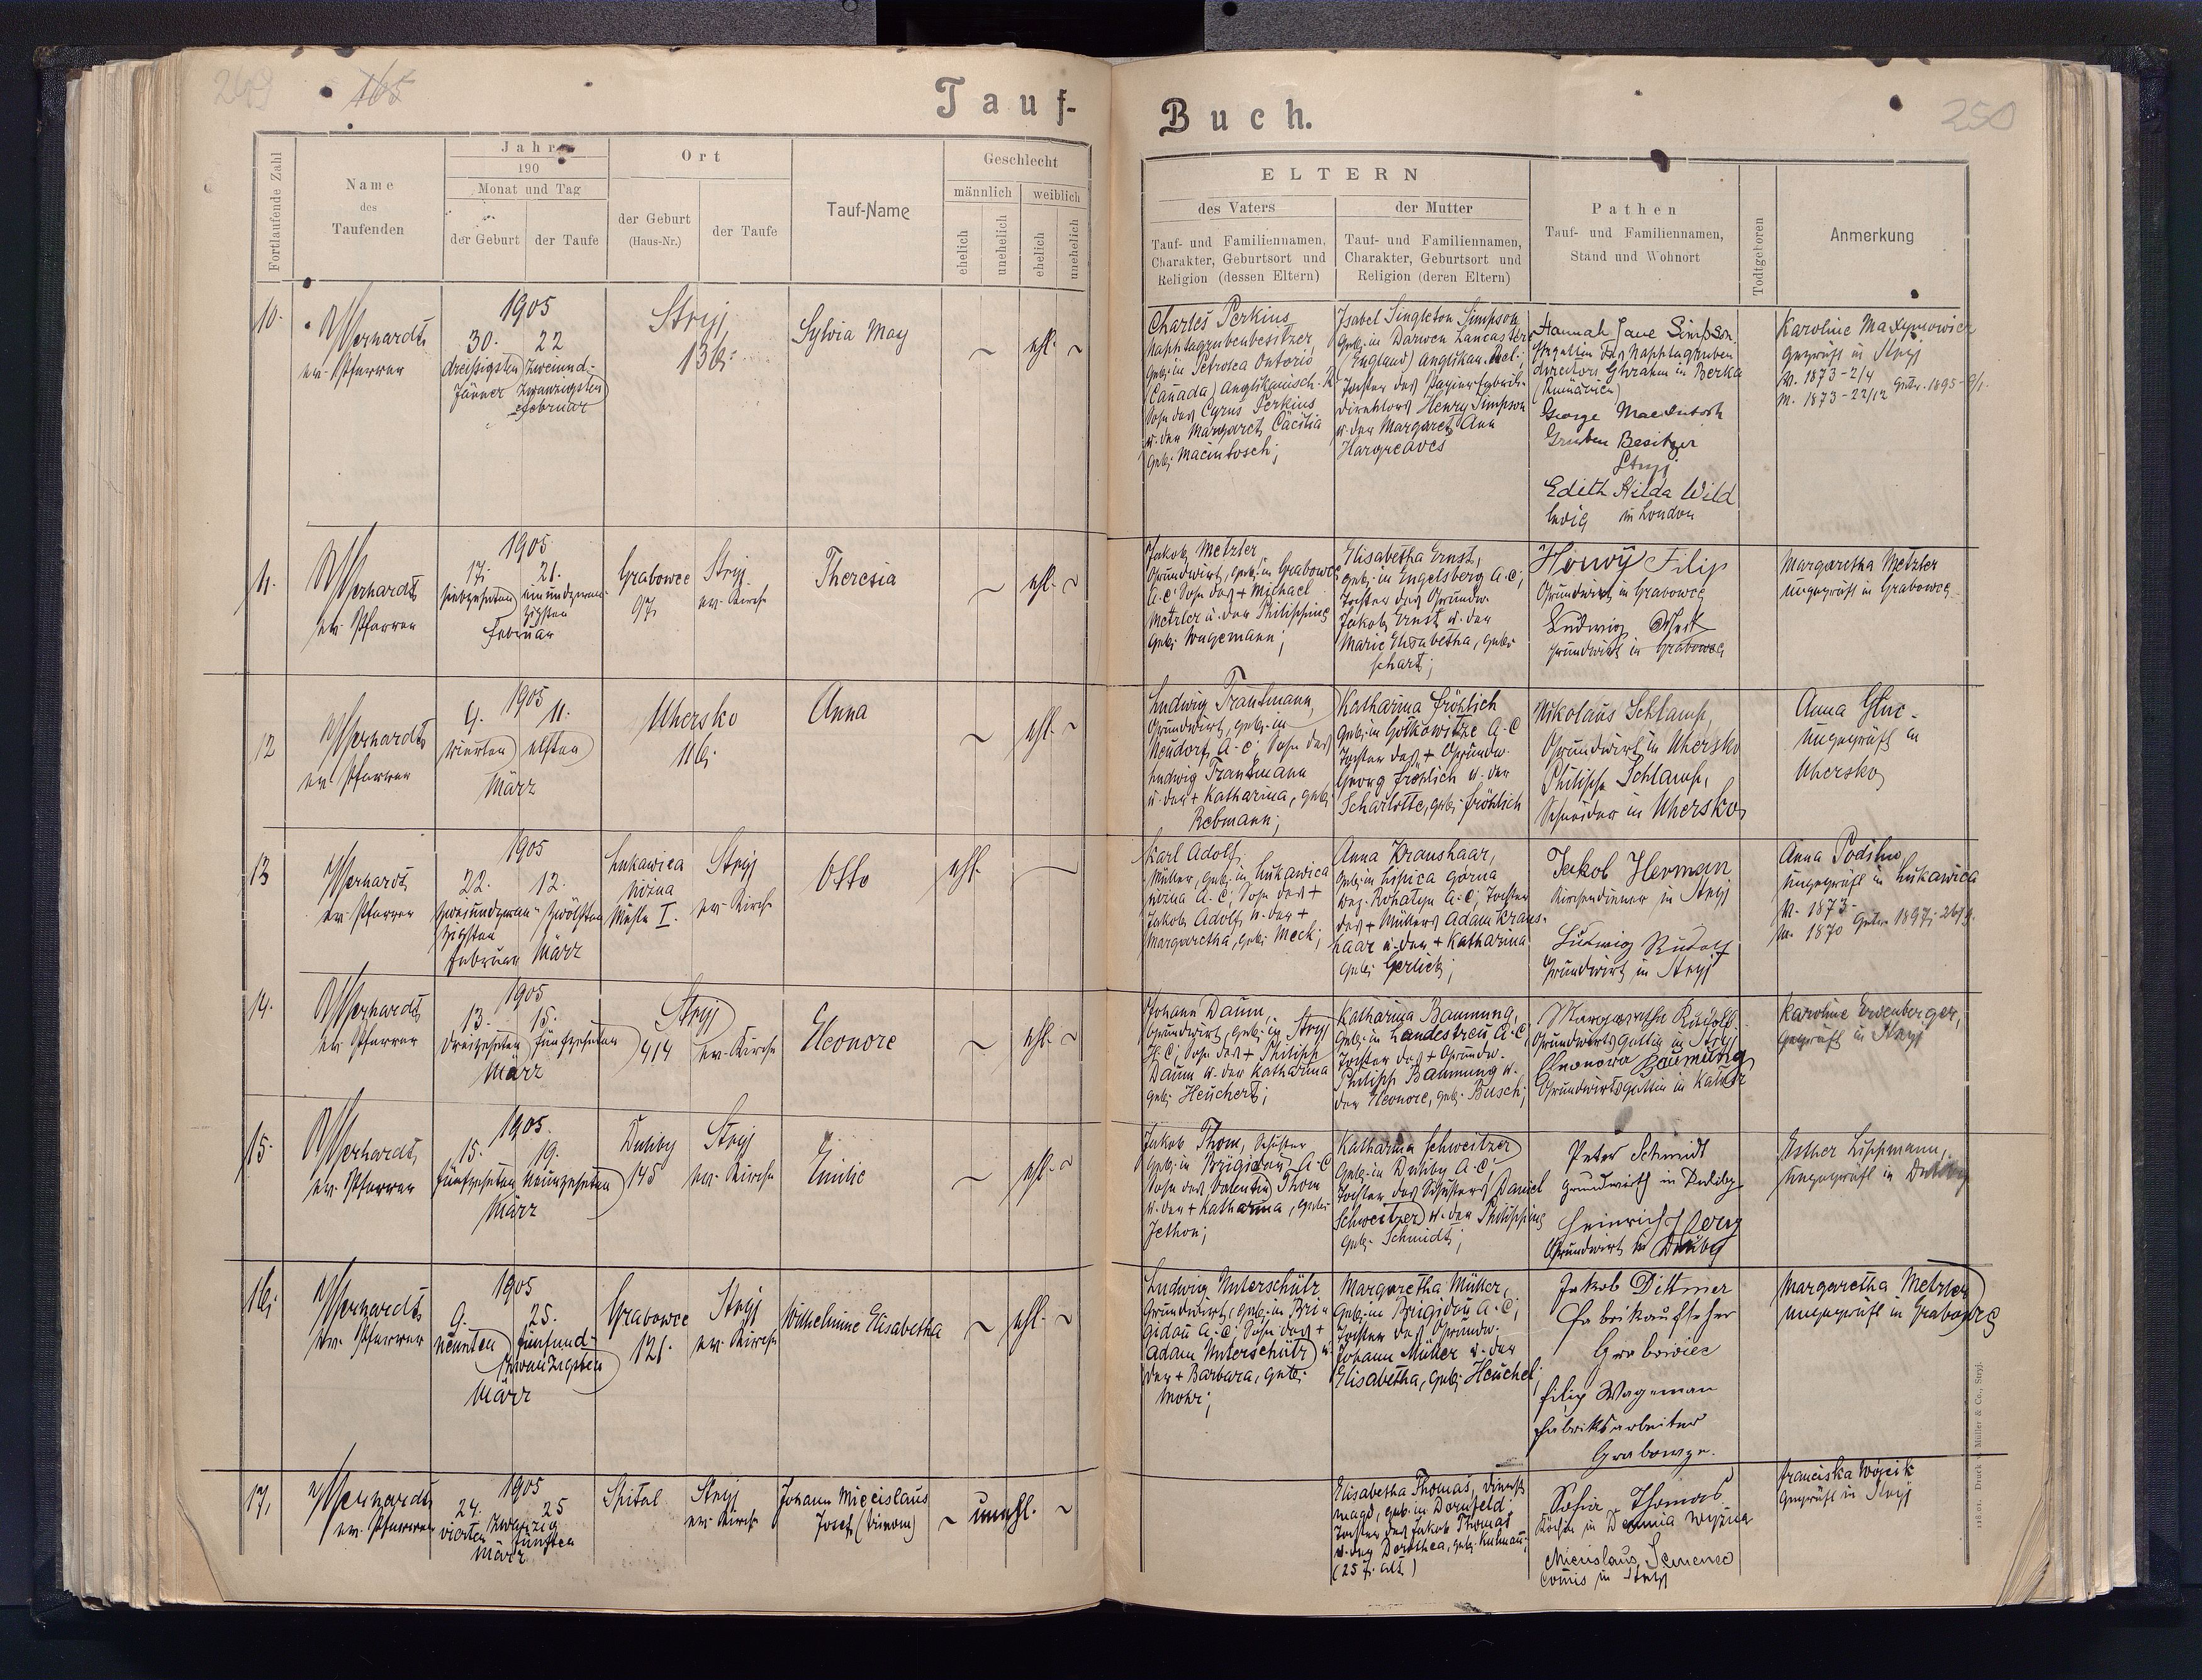 249
165
Tauf-
Buch.
250
Fortlaufende Zahl
Name
des
Taufenden
Jahr
190
Monat und Tag
der Geburt
der Taufe
Ort
der Geburt
(Haus-Nr.)
der Taufe
Tauf-Name
Geschlecht
männlich
weiblich
ehelich
unehelich
ehelich
unehelich
ELTERN
des Vaters
Tauf- und Familiennamen,
Charakter, Geburtsort und
Religion (dessen Eltern)
der Mutter
Tauf- und Familiennamen,
Charakter, Geburtsort und
Religion (deren Eltern)
Pathen
Tauf- und Familiennamen,
Stand und Wohnort
Todtgeboren
Anmerkung
10.
ev. Pfarrer
1905
30. 22
dreißigsten zweiund-
Jänner zwanzigsten
Februar
Stryj,
136.
Sylvia May
~ ehl. ~
Charles Perkins
Naphtagrubenbesitzer
geb. in Petrolea Ontario
(Canada) Anglikanisch. R
Sohn des Cyrus Perkins
u. der Margaret Cäcilia
geb. Macintosch;
Isabel Singleton Simpson
geb. in Darwen Lancaster
(England) Anglikan. Rel.;
Tochter des Papierfabrik-
direktors Henry Simpson
u. der Margaret Ann
Hargreaves
Hannah Jane Simpson
Gattin des Naphtagruben
directors in Berka
(Rumänien)
George MacIntosh
Gruben Besitzer
Stryj
Edith Hilda Wild
ledig in London
Karoline Maxymowicz
geprüft in Stryj
V. 1873-2/4
M. 1873-22/12 Getr. 1895-9/1.
11.
ev. Pfarrer
1905
17. 21.
siebzehnten einundzwan-
zigsten
Februar
Grabowce
97.
Stryj
ev. Kirche
Theresia
~ ehl. ~
Jakob Metzler,
Grundwirt, geb. in Grabowce
A.C. Sohn des + Michael
Metzler u. der Philippine
geb. Wagemann;
Elisabetha Ernst,
geb. in Engelsberg A.C;
Tochter des Grundw.
Jakob Ernst u. der
Marie Elisabetha, geb.
Schart;
Filip
Grundwirt in Grabowce
Ludwig
Grundwirt in Grabowce
Margaretha Metzler
ungeprüft in Grabowce
12
ev. Pfarrer
1905
4. 11.
vierten elften
März
Uhersko
116.
Anna
~ ehl. ~
Ludwig Trautmann,
Grundwirt, geb. in
Neudorf, A.C, Sohn des
Ludwig Trautmann
u. der + Katharina, geb.
Rebmann;
Katharina Fröhlich
geb. in Gotkowitze A.C
Tochter des + Grundw.
Georg Fröhlich u. der
Scharlotte, geb. Fröhlich
Nikolaus Schlamp,
Grundwirt in Uhersko
Philipp Schlamp,
Schneider in Uhersko
Anna
ungeprüft in
Uhersko
13
ev. Pfarrer
1905
22. 12.
zweiundzwan- zwölften
zigsten
Februar März
Lukawica
Mühle I.
Stryj
ev. Kirche
Otto
ehl.
Karl Adolf,
Müller, geb. in Lukawica
A.C; Sohn des +
Jakob Adolf u. der +
Margaretha, geb. Meck;
Anna Kraushaar,
geb. in Lipica górna
Bez. Rohatyn A.C; Tochter
des + Müllers Adam Kraus-
haar u. der + Katharina
geb. Gerlich;
Jakob Herman
Kirchendiener in Stryj
Ludwig Rudolf
Grundwirt in Stryj
Anna
ungeprüft in Lukawica
V. 1873-
M. 1870 Getr. 1897;
14.
ev. Pfarrer
1905
13. 15.
dreizehnten fünfzehnten
März
Stryj
414
ev. Kirche
Eleonore
~ ehl. ~
Johann Daum,
Grundwirt, geb. in Stryj
H.C; Sohn des + Philipp
Daum u. der Katharina
geb. Heuchert;
Katharina Baumung,
geb. in Landestreu A.C,
Tochter des + Grundw.
Philipp Baumung u.
der Eleonore, geb. Busch;
Margaretha Rudolf
Grundwirtsgattin in Stryj
Eleonora Baumung
Grundwirtsgattin in
Karoline
geprüft in Stryj
15.
ev. Pfarrer
1905.
15. 19.
fünfzehnten neunzehnten
März
Duliby
145
Stryj
ev. Kirche
Emilie
~ ehl. ~
Jakob Thom, Schuster
geb. in Brigidau, A.C
Sohn des Valentin Thom
u. der + Katharina, geb.
Jethon;
Katharina Schweitzer
geb. in Duliby A.C;
Tochter des Schusters Daniel
Schweitzer u. der Philippine
geb. Schmidt;
Peter Schmidt
Grundwirth in Duliby
Heinrich
Grundwirt in Duliby
Esther Lippmann,
ungeprüft in Duliby
16.
ev. Pfarrer
1905
9. 25.
neunten fünfund-
zwanzigsten
März
Grabowce
121.
Stryj
ev. Kirche
Wilhelmine Elisabetha
~ ehl. ~
Ludwig Unterschütz
Grundwirt, geb. in Bri-
gidau A.C; Sohn des +
Adam Unterschütz u.
der + Barbara, geb.
Mohr;
Margaretha Müller,
geb. in Brigidau A.C;
Tochter des Grundw.
Johann Müller u. der
Elisabetha, geb. Heuchel;
Jakob Dittmer
Fabrikaufseher
Grabowiec
Filip Wageman
Fabriksarbeiter
Margaretha Metzler
ungeprüft in Grabowce
17.
ev. Pfarrer
1905
24. 25
vierten zwanzig
fünften
März
Spital
Stryj
ev. Kirche
Johann Miecislaus
Josef
~ unehl. ~
Elisabetha Thomas, Dienst-
magd, geb. in Dornfeld
Tochter des Jakob Thomas
u. der Dorothea, geb.
(25 J. alt)
Sofia Thomas
Köchin in
Miecislaus
Comis in Stryj
Franciska Wojcik
geprüft in Stryj
118.01. Druck Müller & Co., Stryj.